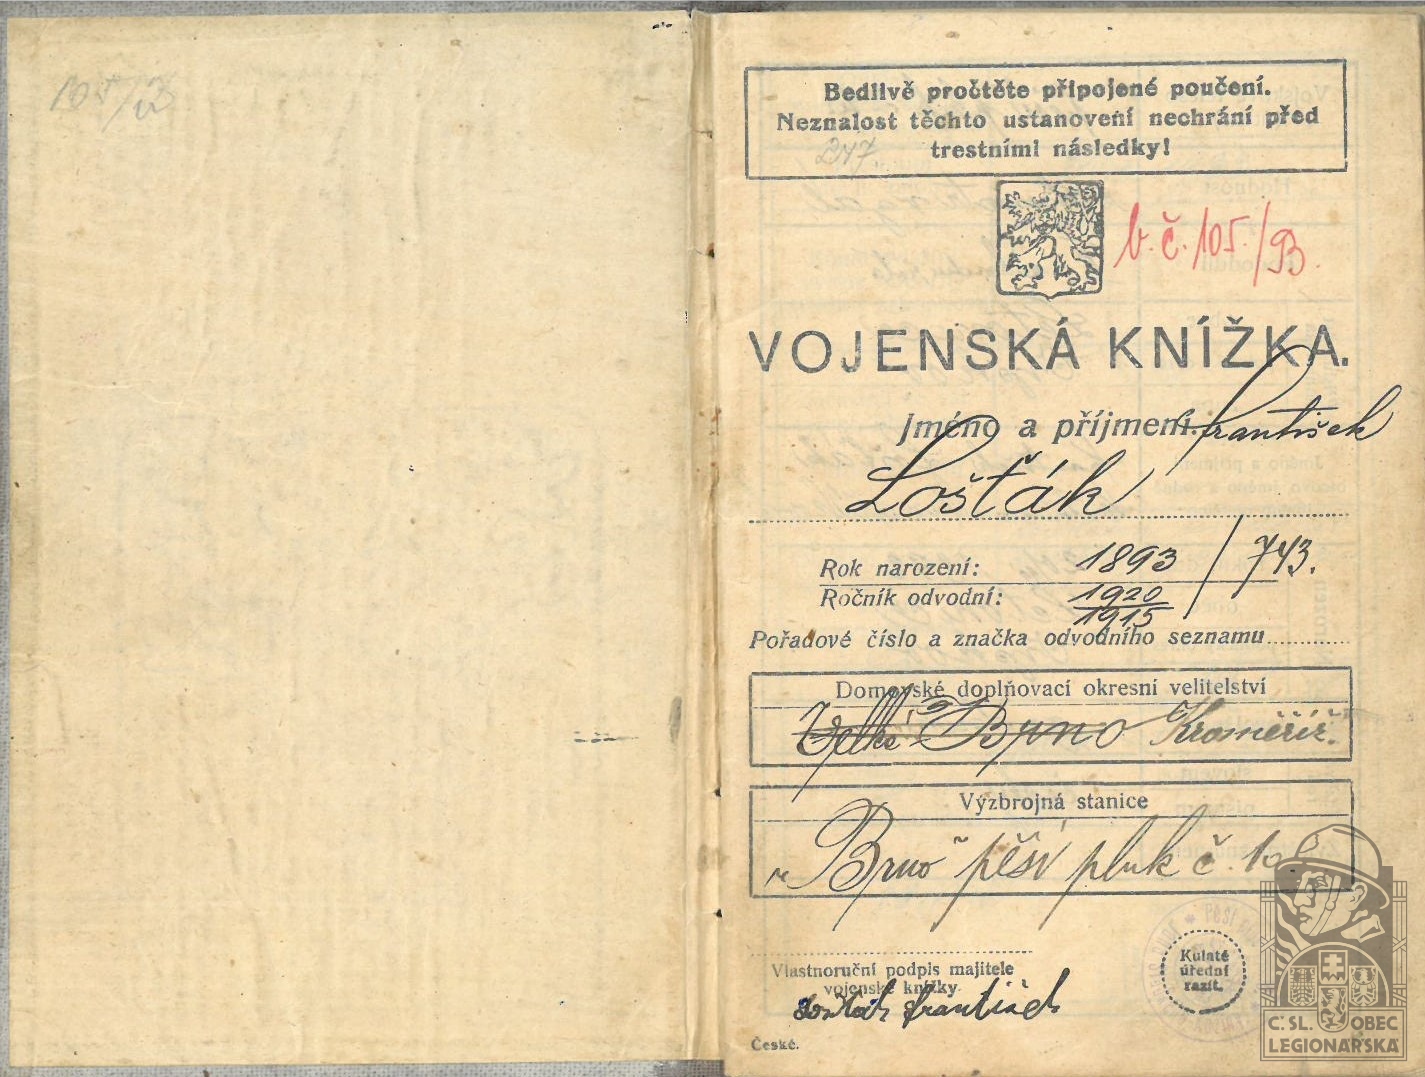 105/93
Bedlivě pročtěte připojené poučení.
Neznalost těchto ustanovení nechrání před
trestními následky!
247.
b. č. 105./93.
VOJENSKÁ KNÍŽKA.
Jméno a příjmení František
Lošťák
Rok narození: 1893 / 743.
Ročník odvodní: 1920
1915
Pořadové číslo a značka odvodního seznamu
Domovské doplňovací okresní velitelství
Velké Brno Kroměříž.
Výzbrojná stanice
Brno pěší pluk č. 10
Vlastnoruční podpis majitele
vojenské knížky
Lošťák František
Kulaté
úřední
razít.
České.
Č. SL. OBEC
LEGIONÁŘSKÁ